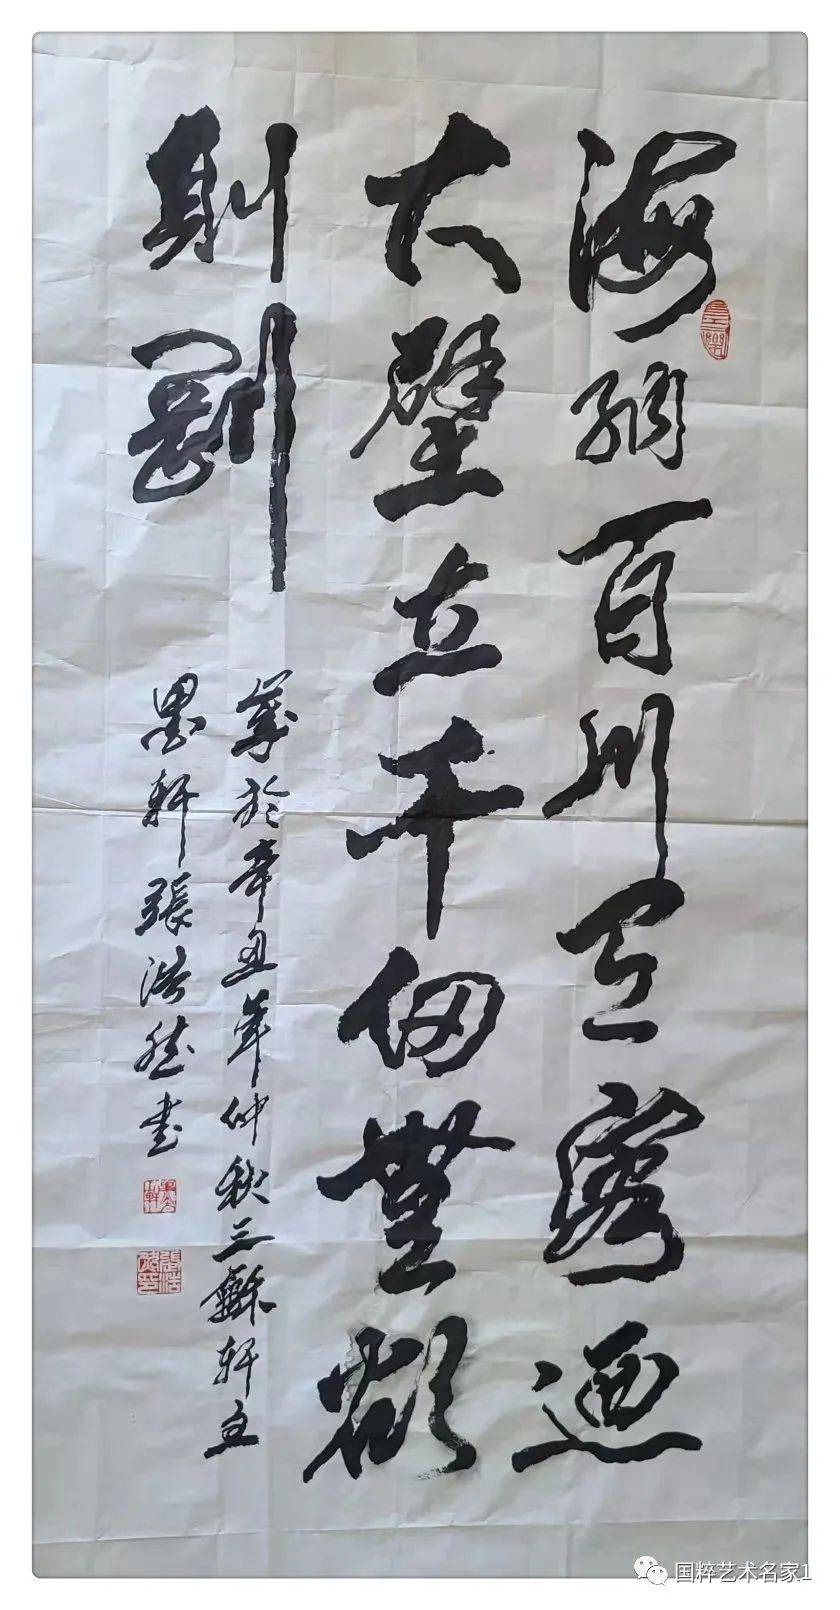 海納百川有容迺
大壁立千仞無欲
則剛
歲於辛丑年仲秋三蘇軒主
墨軒張浩然書
国粹艺术名家1